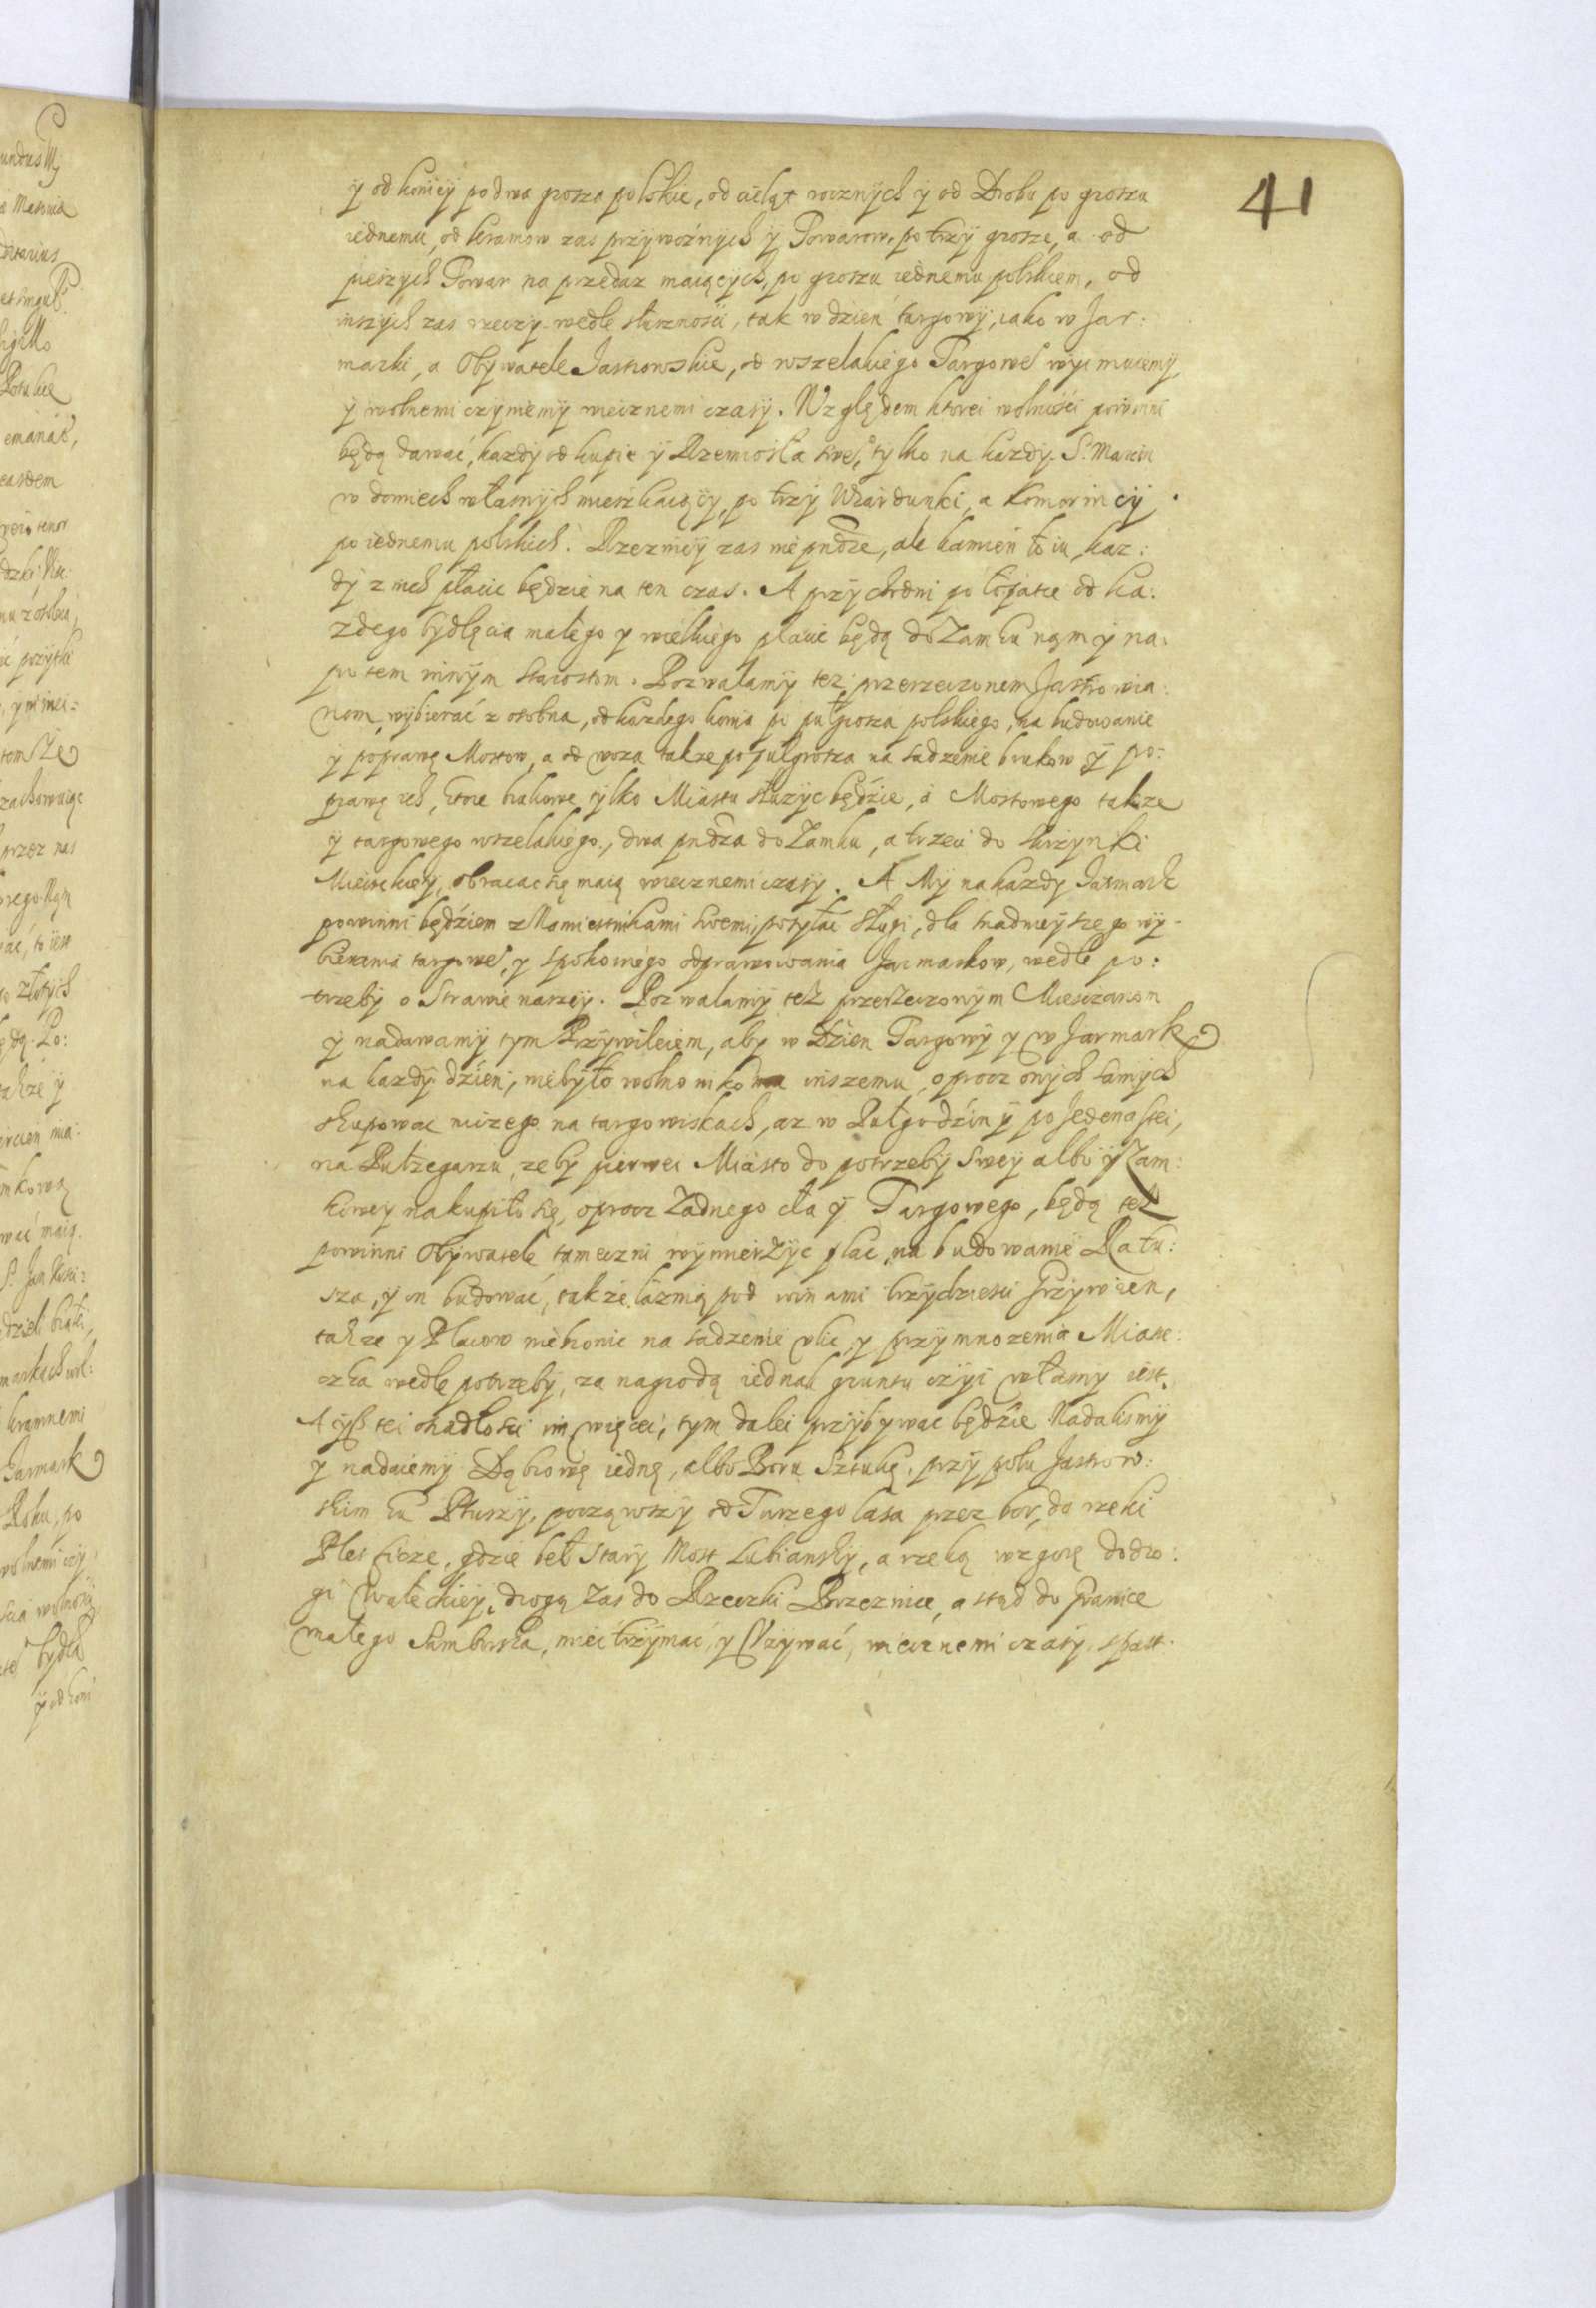 41
ÿ od koniey po dwa grosza polskie, od cieląt rocznÿch ÿ od Drobu po groszu
iednemu, od kramow zas przÿwoźnÿch ÿ Towarow, po trzÿ grosze, a od
pieszÿch Towar na przedaz maiącÿch, po groszu iednemu polskiem, od
inszÿch zas rzeczÿ wedle słusznosci, tak w dzień targowÿ, iako w Jar:
marki, a Obÿwatele Jastrowskie, od wszelakiego Targowe° wÿimuiemÿ
ÿ wolnemi czÿniemÿ wiecznemi czasÿ. Względem ktorei wolności powinni
będą dawać, kazdÿ od kupie ÿ Rzemiosła swe°, tÿlko na kazdÿ S. Marcin
w domiech własnÿch mieszkaiącÿ, po trzÿ Wiardunki, a Komornicÿ
po iednemu polskich. Rzeznicÿ zas nie pndze, ale kamień łoiu, kaz:
dÿ z nich płacic będzie na ten czas. A przÿchodni po łopatce od ka:
zdego bÿdlęcia małego y wielkiego płacic będą do Zamku nam ÿ na:
potem innÿm Starostom. Pozwalamÿ tez przerzeczonem Jastrowia:
nom, wÿbierać z osobna, od kazdego konia po pułgrosza polskiego, na budowanie
ÿ poprawę Mostow, a od woza takze po pułgrosza na sadzenie brukow ÿ po:
prawę ich, ktore brukowe tÿlko Miastu słuzÿc będzie, a Mostowego takze
ÿ targowego wszelakiego, dwa pndza do Zamku, a trzeci do skrzÿnki
Mieiskieÿ, obracac się maią wiecznemi czasÿ. A Mÿ na kazdy Jarmark
powinni będziem z Namiestnikami swemi, posÿłac sługi, dla snadnieÿszego wÿ-
bierania targowe°, y spokoinego odprawowania Jarmarkow, wedle po:
trzebÿ o Strawie naszeÿ. Pozwalamÿ tez przerzeczonÿm Miesczanom
ÿ nadawamÿ tym Przÿwileiem, aby w Dzien Targowÿ y w Jarmark
na kazdÿ dzień, niebÿło wolno nikomu inszemu, oprocz onÿch samÿch
skupowac niczego na targowiskach, az w Pułgodzinÿ po Jedenastei,
na Pułzegarzu, zeby pierwei Miasto do potrzebÿ sweÿ albo ÿ Zam:
kowey nakupiło się, oprocz Zadnego cła ÿ Targowego, będą tez
powinni Obÿwatele tameczni wÿmierzÿc plac, na budowanie Ratu:
sza, y on budować, takze łaznią pod winami trzÿdziesci Grzywien,
takze y Placow niebronic na sadzenie vlic, y przÿmnozenia Miast:
czka wedle potrzebÿ, za nagrodą iednak gruntu czÿi własnÿ iest.
A iz tei osadłosci im więcei, tym dalei przÿbywac będzie Nadalismÿ
y nadaiemÿ Dąbrowę iednę, albo Boru Sztukę, przÿ polu Jastrow:
skim ku Ptuszÿ, począwszÿ od Turzego lasa przez bor, do rzeki
gdzie beł Starÿ Most Lubianskÿ, a rzeką wzgorę do dro:
gi Wałeckieÿ, drogą zas do Rzeczki Brzeznice, a stąd do Granice
małego Samborska, mieć trzÿmać, y Vzÿwać, wiecznemi czasÿ.